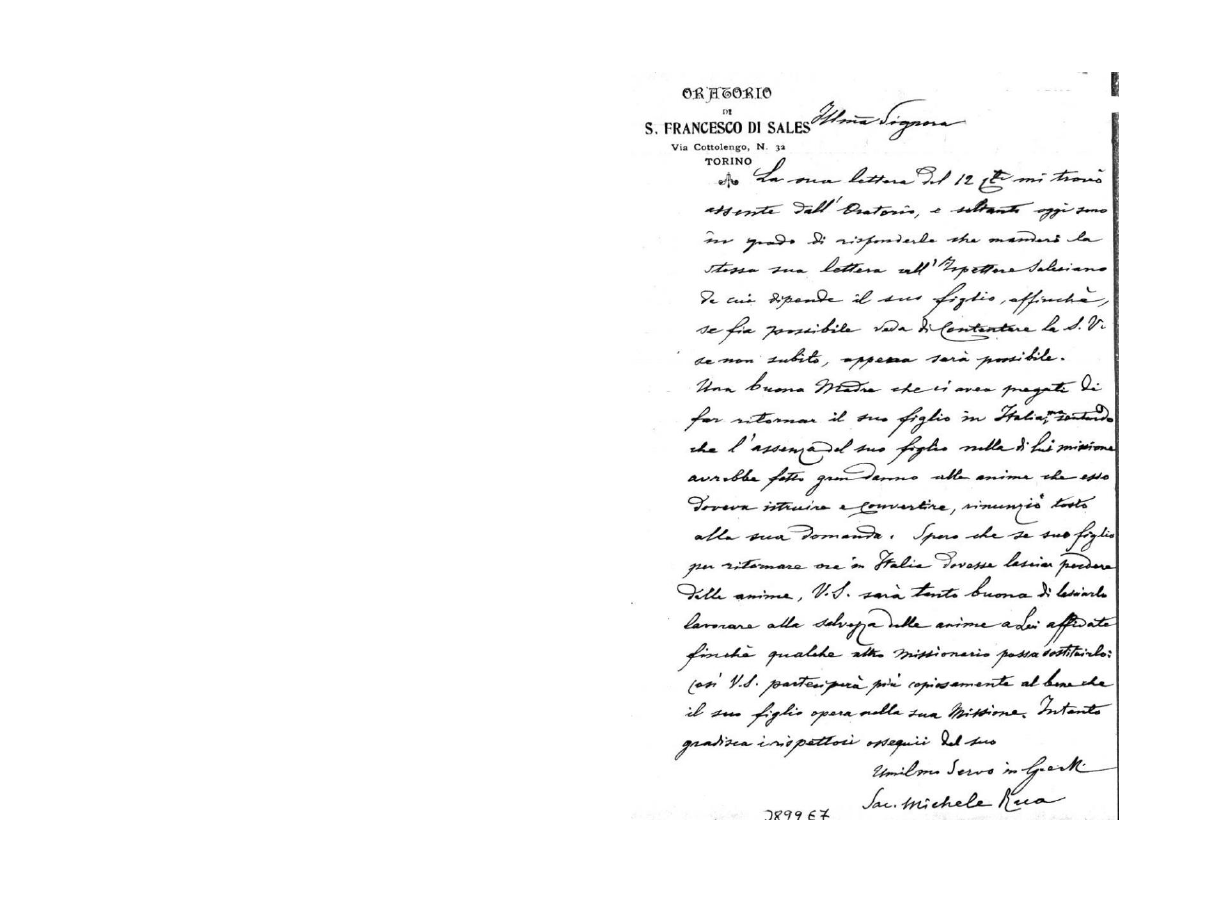 ORATORIO
DI
S. FRANCESCO DI SALES
Via Cottolengo, N. 32
TORINO
Illma Signora
La sua lettera del 12 mi trovò
assente dall'Oratorio, e soltanto oggi sono
in grado di risponderle che manderò la
stessa sua lettera all'Ispettore Salesiano
da cui dipende il suo figlio, affinchè,
se fia possibile veda di contentare la S.V.
se non subito, appena sarà possibile.
Una buona Madre che ci avea pregati di
far ritornar il suo figlio in Italia, sentendo
che l'assenza del suo figlio nella di lui missione
avrebbe fatto gran danno alle anime che esso
doveva istruire e convertire, rinunziò tosto
alla sua domanda. Spero che se suo figlio
per ritornare ora in Italia dovesse lasciar perdere
delle anime, V.S. sarà tanto buona di lasciarlo
lavorare alla salvezza delle anime a Lui affidate
finchè qualche altro missionario possa sostituirlo:
così V.S. parteciperà più copiosamente al bene che
il suo figlio opera nella sua Missione. Intanto
gradisca i rispettosi ossequii del suo
Umilmo Servo in G. e M.
Sac. Michele Rua
2899 E7